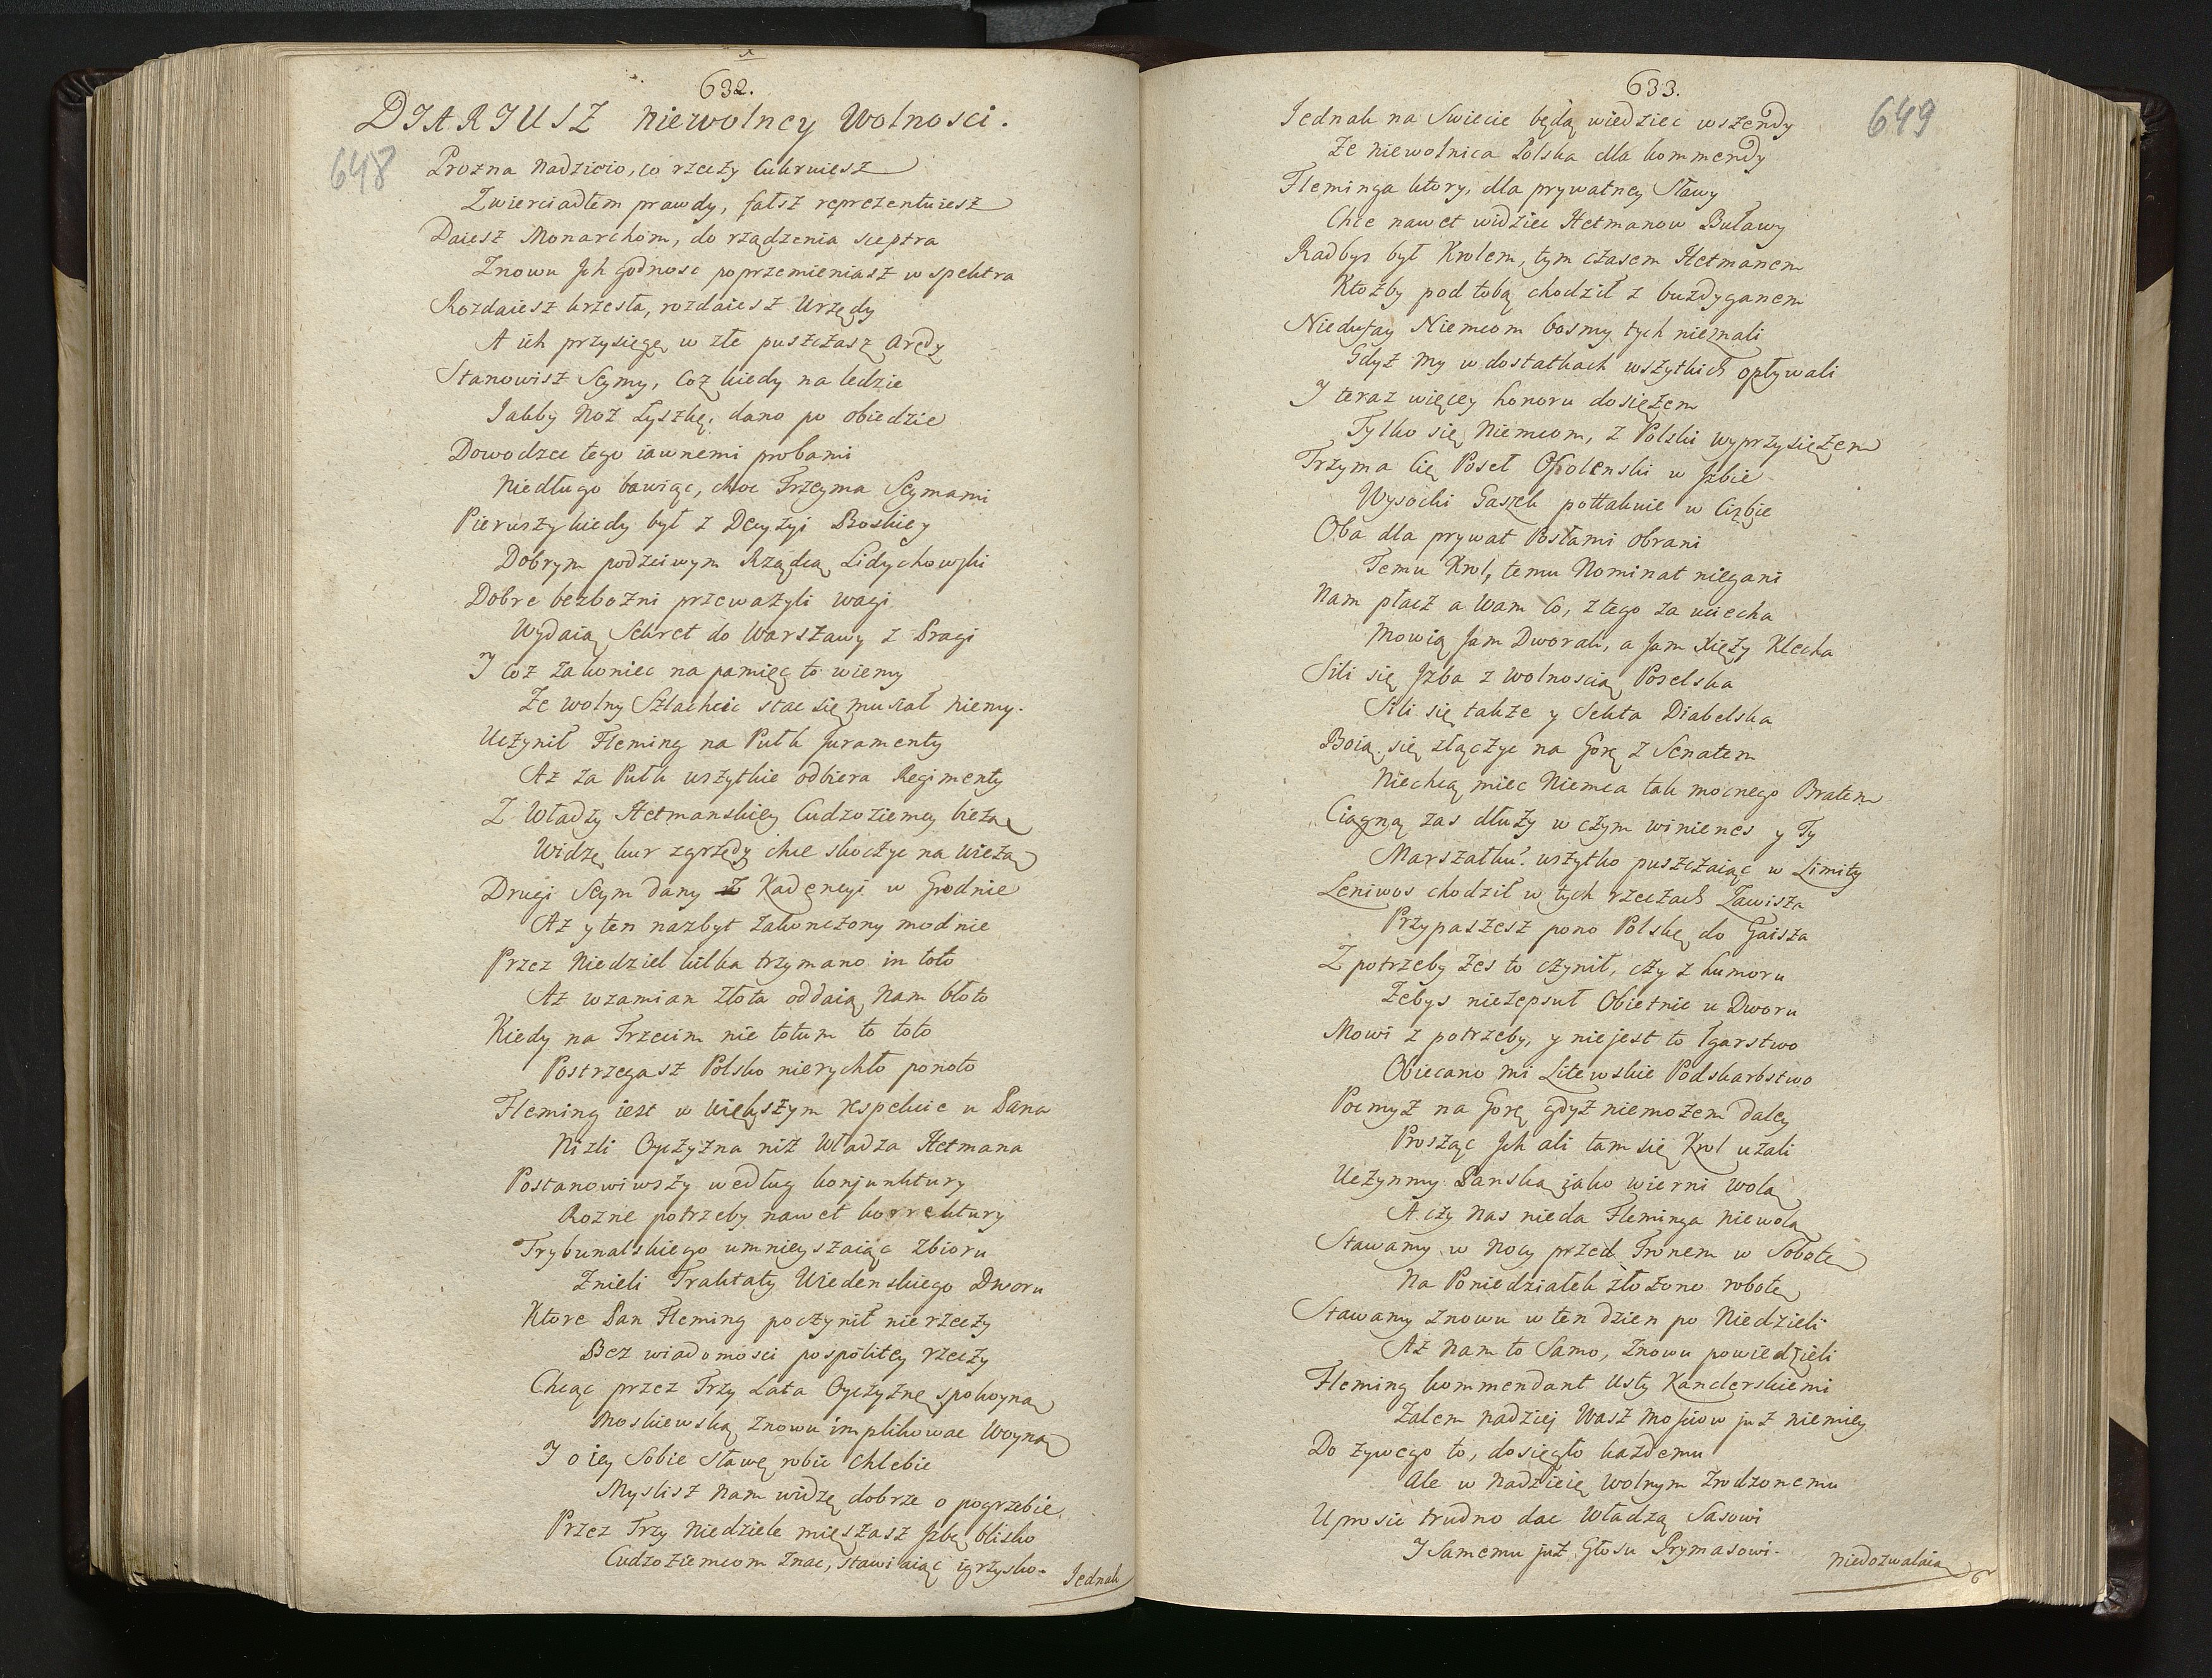 632.
DIARIUSZ niewolney Wolnosci.
648
Prozna Nadzieio, co rzeczy Cukruiesz
Zwierciadłem prawdy, fałsz reprezentuiesz
Daiesz Monarchom, do rządzenia sceptra
Znowu Jch godnosc poprzemieniasz w spektra
Rozdaiesz krzesła, rozdaiesz Urzędy
A ich przysięgę w złe puszczasz Arędy
Stanowisz Seymy, Coz kiedy na ledzie
Jakby Noz Łyszkę, dano po obiedzie
Dowodzce tego iawnemi probami
Niedługo bawiąc, choc Trzeyma Seymami
Pierwszy kiedy był z Decyzyi Boskiey
Dobrym podzciwym Rządcą Lidychowski
Dobre bezbozni przewazyli wagi
Wydaią Sekret do Warszawy z Pragi
J Coz za koniec na pamięc to wiemy
Ze wolny Szlachcic stac się musiał niemy.
Uczynił Fleming na Pułk Juramenty
Az za Pułk wszytkie odbiera Regimenty
Z Władzy Hetmanskiey Cudzoziemcy bieżą
Widzę kur zgrzędy chce skoczyc na Wieżą
Drugi Seym dany z Kadencyi w Grodnie
Az y ten nazbyt zakonczony modnie
Przez Niedziel kilka trzymano in toto
Az wzamian złota oddaią Nam błoto
Kiedy na Trzecim nie totum to toto
Postrzegasz Polsko nierychło ponoto
Fleming iest w większym respekcie u Pana
Nizli Oyczyzna niż Władza Hetmana
Postanowiwszy według konjunktury
Rozne potrzeby nawet korrektury
Trybunalskiego umnieyszaiąc Zbioru
Znieli Traktaty Wiedenskiego Dworu
Ktore Pan Fleming poczynił nierzeczy
Bez wiadomosci pospolitey rzeczy
Chcąc przez Trzy Lata Oyczyznę spokoyną
Moskiewską znowu implikowac Woyną
J o iey Sobie Sławę robic Chlebie
Myslisz Nam widzę dobrze o pogrzebie
Przez Trzy Niedziele mięszasz Jzbę blisko
Cudzoziemcom Znac, stawiaiąc igrzysko.
Jednak
633.
649
Jednak na Swiecie będą wiedziec wszendy
Ze niewolnica Polska dla kommendy
Fleminga ktory, dla prywatney Sławy
Chce nawet widziec Hetmanow Buławy
Radbys był Krolem, tym czasem Hetmanem
Ktozby pod tobą chodził z buzdyganem
Niedufay Niemcom bosmy tych nieznali
Gdyz My w dostatkach wszytkich opływali
J teraz więcey honoru dosięzem
Tylko się Niemcom, z Polski wyprzysięzem
Trzyma Się Poseł Opolenski w Jzbie
Wysocki Gaszek pottakuie w Cizbie
Oba dla prywat Posłami obrani
Temu Krol, temu Nominat niegani
Nam płacz a Wam Co, z tego za uciecha
Mowią Jam Dworak, a Jam Xięzy Klecha
Sili się Jzba z wolnoscią Poselska
Sili się takze y Sekta Diabelska
Boią się złączyc na Gorę z Senatem
Niechcą miec Niemca tak mocnego Bratem
Ciągną zas dłuzy w czym winienes y Ty
Marszałku! wszytko puszczaiąc w Limity
Leniwos chodził w tych rzeczach Zawisza
Przypaszesz pono Polskę do Gaisza
Z potrzeby zes to czynił, czy z humoru
Zebys niezepsuł Obietnic u Dworu
Mowi z potrzeby, y niejest to łgarstwo
Obiecano mi Litewskie Podskarbstwo
Pocmyż na Gorę gdyż niemozem daley
Prosząc Jch ali tam się Krol uzali
Uczynmy Panską jako wierni wolą
A czy Nas nieda Fleminga Niewolą
Stawamy w Nocy przed Tronem w Sobotę
Na Poniedziałek złożono robotę
Stawamy znowu w ten dzien po Niedzieli
Az Nam to Samo, znowu powiedzieli
Fleming kommendant Usty Kanclerskiemi
Zalem nadziej Wasz Mosciow już niemiey
Do zywego to, dosięgło kazdemu
Ale w Nadzieię Wolnym Zrodzonemu
Uprosic trudno dac Władzą Sasowi
J Samemu już Głosu Prymasowi.
niedozwalaią